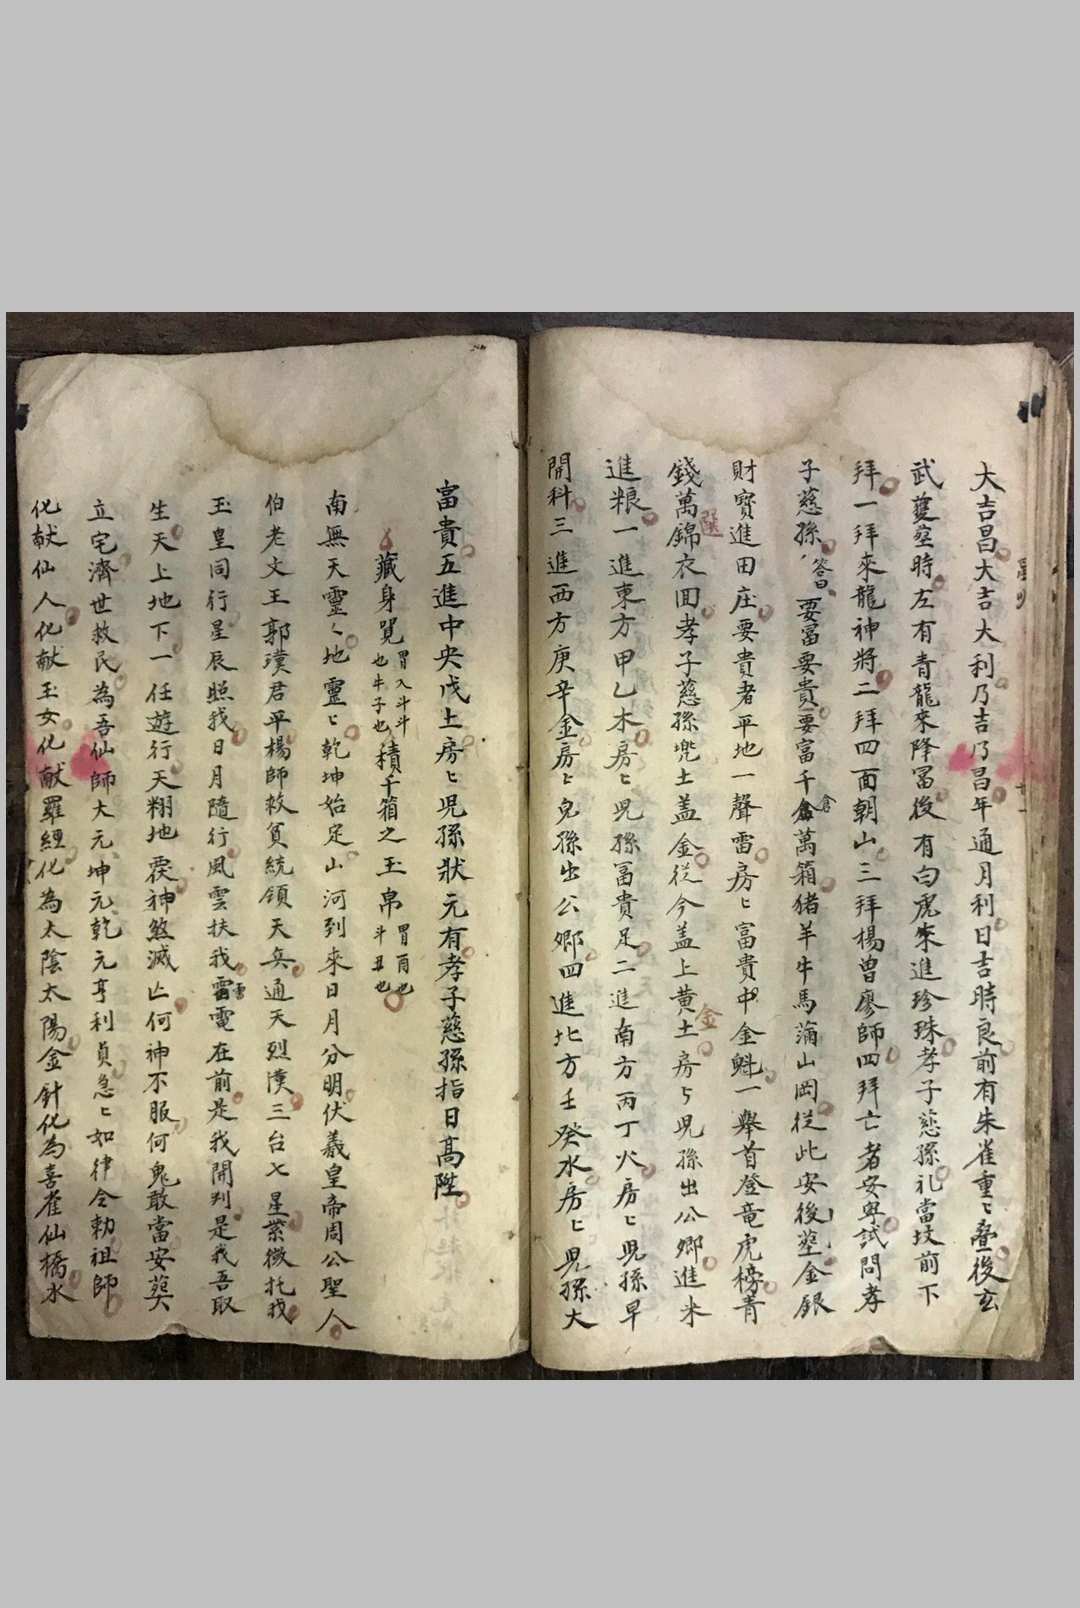 大吉昌大吉大利乃吉乃昌年通月利日吉時良前有朱雀重〻疊後玄
武雙塋時左有青龍來降冨後有白虎來進珍珠孝子慈孫礼當坟前下
拜一拜來龍神將二拜四面朝山三拜楊曾廖師四拜亡者安寕試問孝
子慈孫答曰要冨要貴要富千倉萬箱猪羊牛馬滿山岡從此安後塋金銀
財寳進田庄要貴者平地一聲雷房〻富貴中金魁一舉首登竜虎榜青
錢萬選錦衣囬孝子慈孫兠土盖金從今盖上黄金土房〻児孫出公卿進米
進粮一進東方甲乙木房〻児孫冨貴足二進南方丙丁火房〻児孫早
開科三進西方庚辛金房〻児孫出公卿四進北方壬癸水房〻児孫大
富貴五進中央戊土房〻児孫狀元有孝子慈孫指日髙陞
藏身覺胃入斗斗也牛子也積千箱之玉帛胃酉也斗丑也
南無天靈〻地靈〻乾坤始定山河到來日月分明伏羲皇帝周公聖人
伯老文王郭璞君平楊師救貧統領天兵通天烈漢三台七星紫微托我
玉皇同行星辰照我日月隨行風雲扶我雷電在前是我開判是我吾取
生天上地下一任遊行天翔地戾神煞滅亡何神不服何鬼敢當安葬
立宅濟世救民為吾仙師大元坤元乾元亨利貞急〻如律令勅祖師
化献仙人化献玉女化献羅經化為太陰太陽金針化為喜雀仙橋水